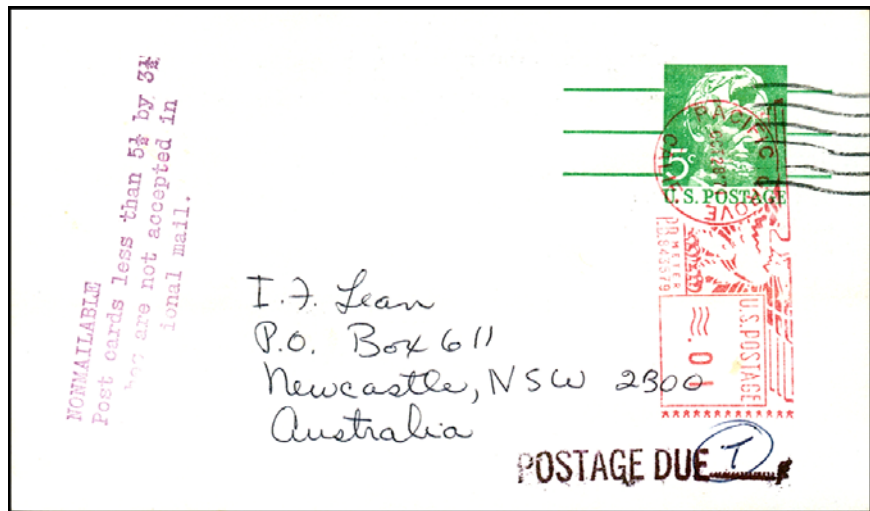 NONMAILABLE
Post cards less than 5½ by 3½
are not accepted in
ional mail.
5c
U.S. POSTAGE
PACIFIC GROVE
CALIF.
P.B. METER
843579
U.S. POSTAGE
.01
I. F. Lean
P.O. Box 611
Newcastle, NSW 2300
Australia
POSTAGE DUE T ¢